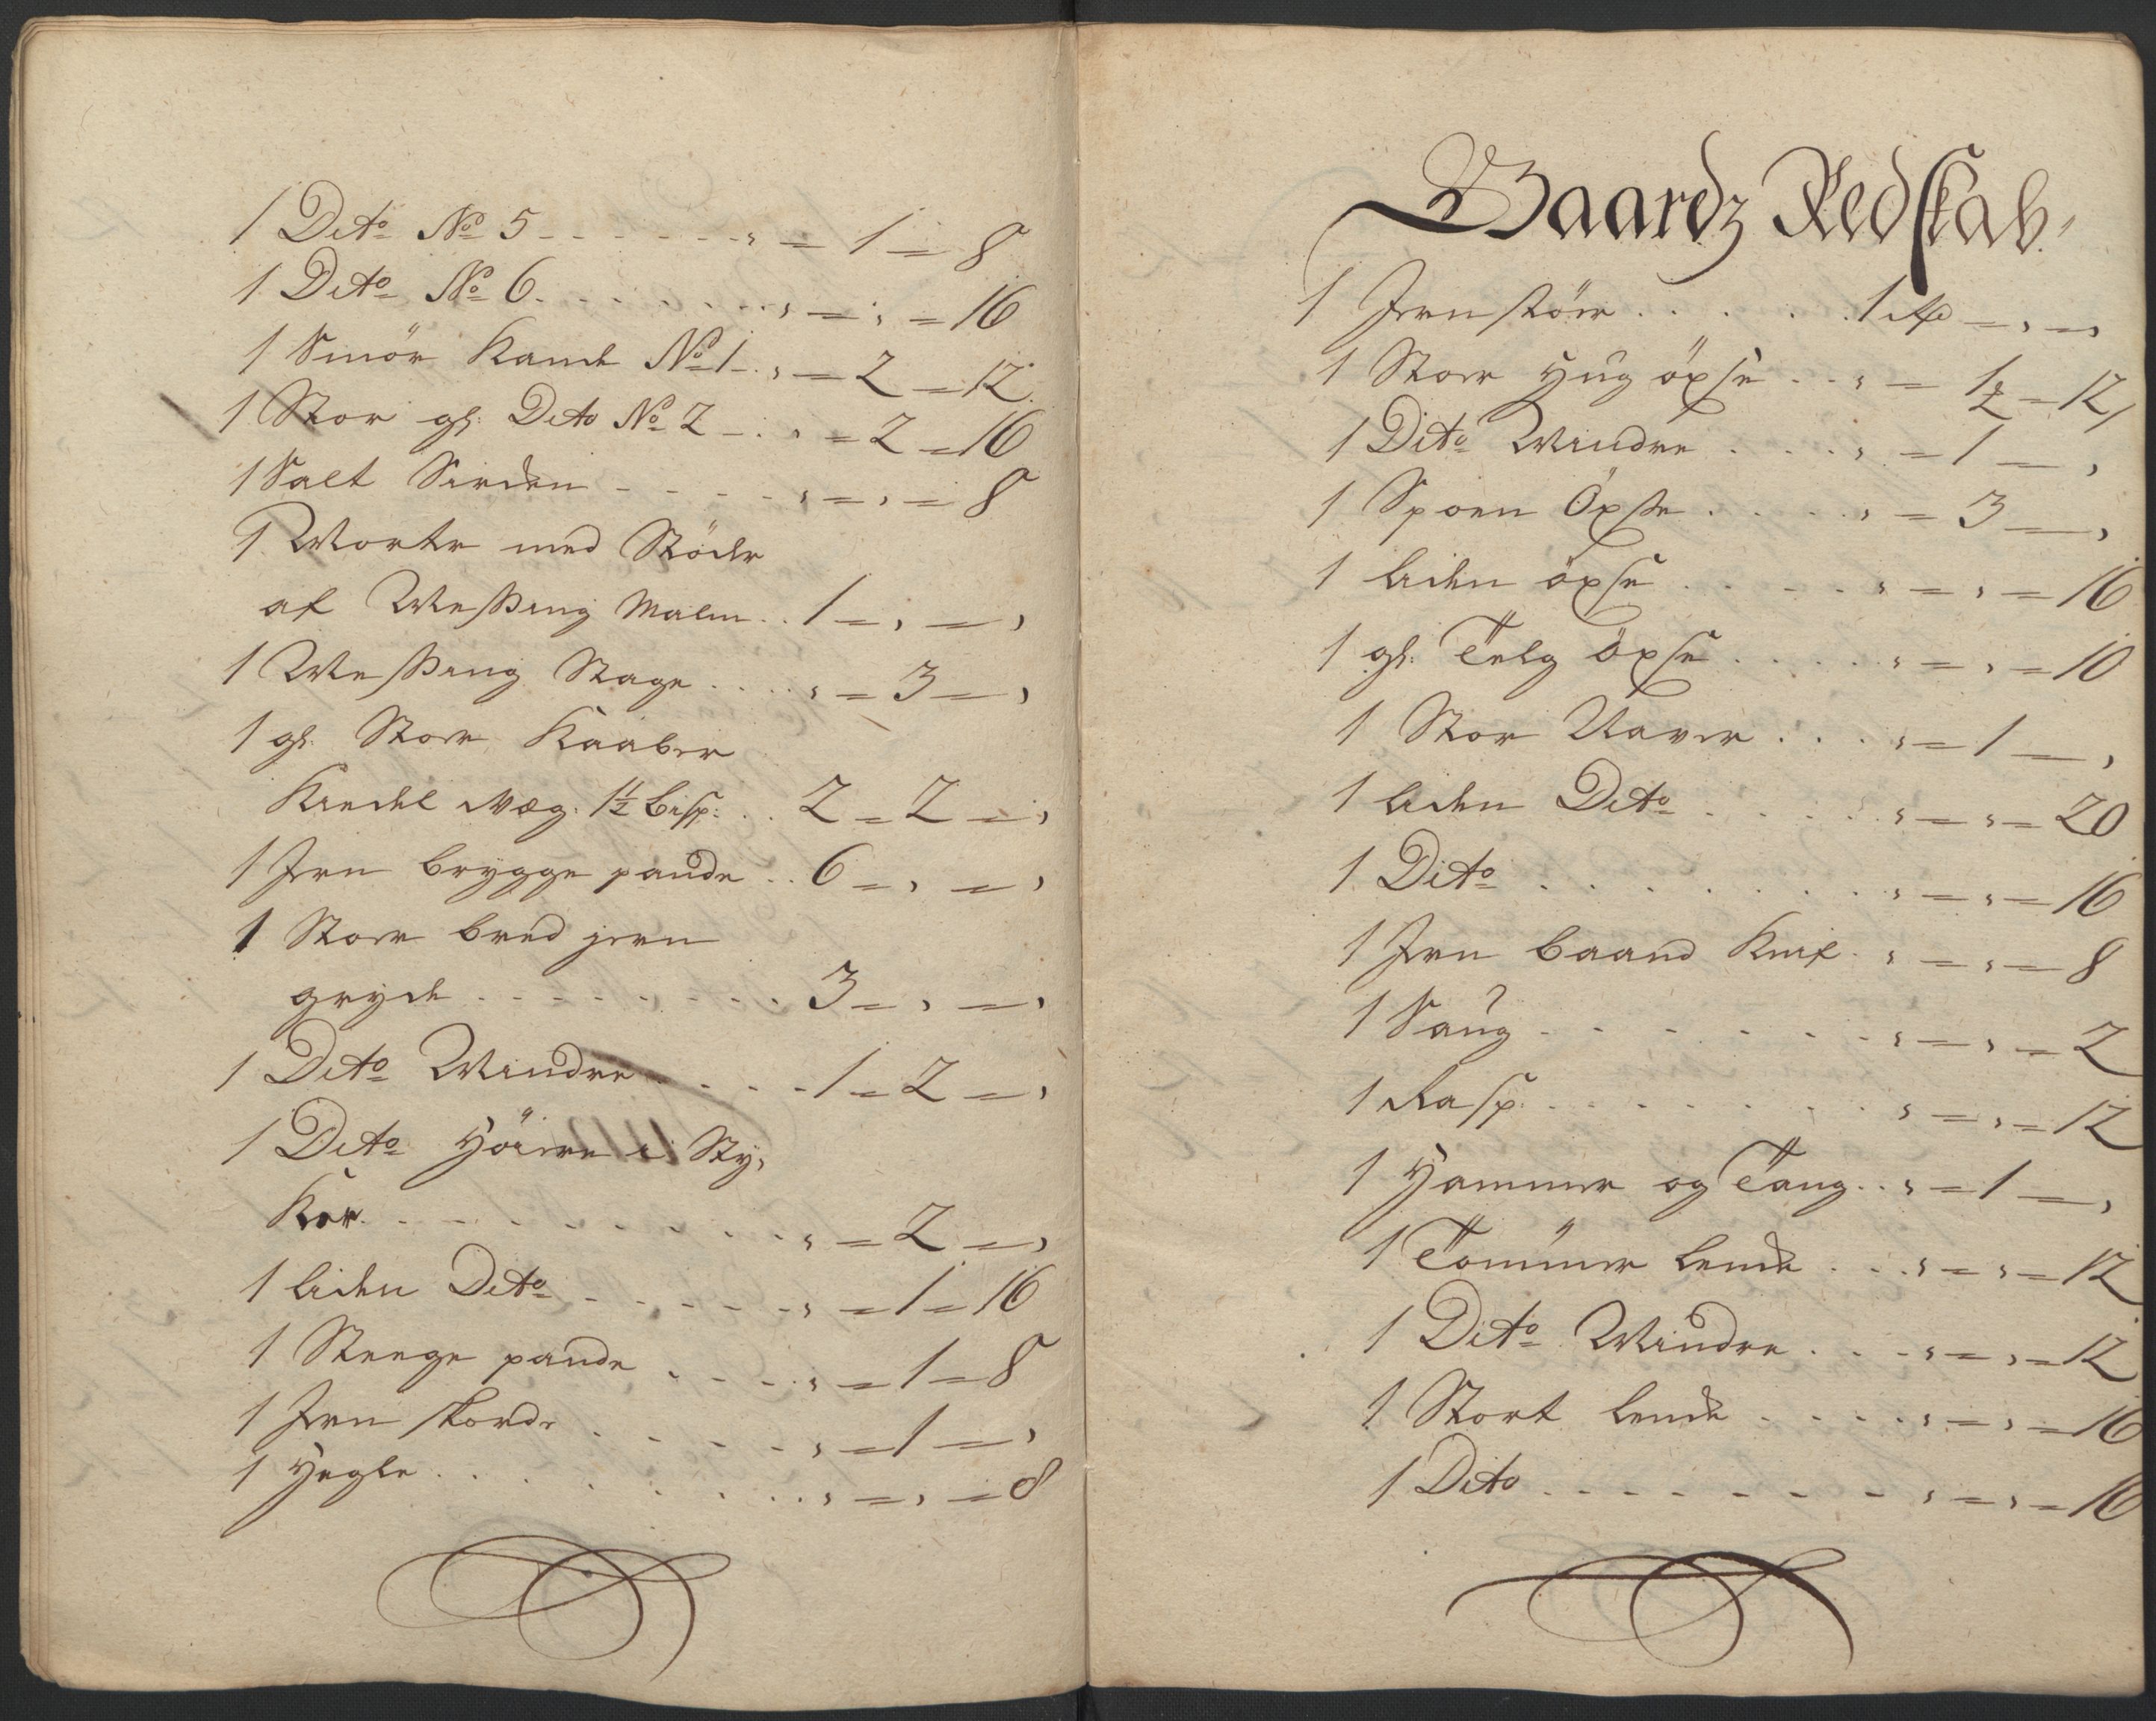 1 Dito No 5 - - - - - - , = 1 = 8
1 Dito No 6 . . . . . . . , = , = 16
1 Smör Kande No 1 . , = 2 = 12
1 Stor gl: Dito No 2 - . , = 2 = 16
1 Salt - - - - , = , = 8
1 Morter med Stöder
af Messing Malm . . 1 = , = ,
1 Messing Stage . . . . , = 3 = ,
1 gl. Stor Kaaber
Kiedel Væg. 1½ Bisp: . . 2 = 2 = ,
1 Jern brygge pande . . 6 = , = ,
1 Stor bred jern
gryde . - - - - - . . 3 = , = ,
1 Dito Mindre . - . - 1 = 2 = ,
1 Dito Höiere i Sty,
Ker . - - - - - - - , = 2 = ,
1 liden Dito - - - - - , = 1 = 16
1 Steege pande . - - . , = 1 = 8
1 Jern . - - - , = 1 = ,
1 Hegle . . . . . . . , = , = 8
Gaardz Redskab,
1 Jernstör . . . . . 1 = , = ,
1 Stor Hug öxse . . , = 1½ = 12
1 Dito Mindre . . . . , = 1 = ,
1 Spoen Öxse . . . . , = 3 = ,
1 liden öxse . . - - - , = , = 16
1 gl. Telg öxse . . . . . , = , = 10
1 Stor Naver . . . . , = 1 = ,
1 liden Dito . . . . . , = , = 20
1 Dito . . . . . . . . , = , = 16
1 Jern baand Knif . , = , = 8
1 Saug - - - - - - - , = , = 2
1 Rasp . - - - - - - , = , = 12
1 Hammer og Tang . . , = 1 = ,
1 Tömmer lende . . . , = , = 12
1 Dito Mindre . . - , = , = 12
1 Stort lende . - - - . , = , = 16
1 Dito . - - - - - - - , = , = 16